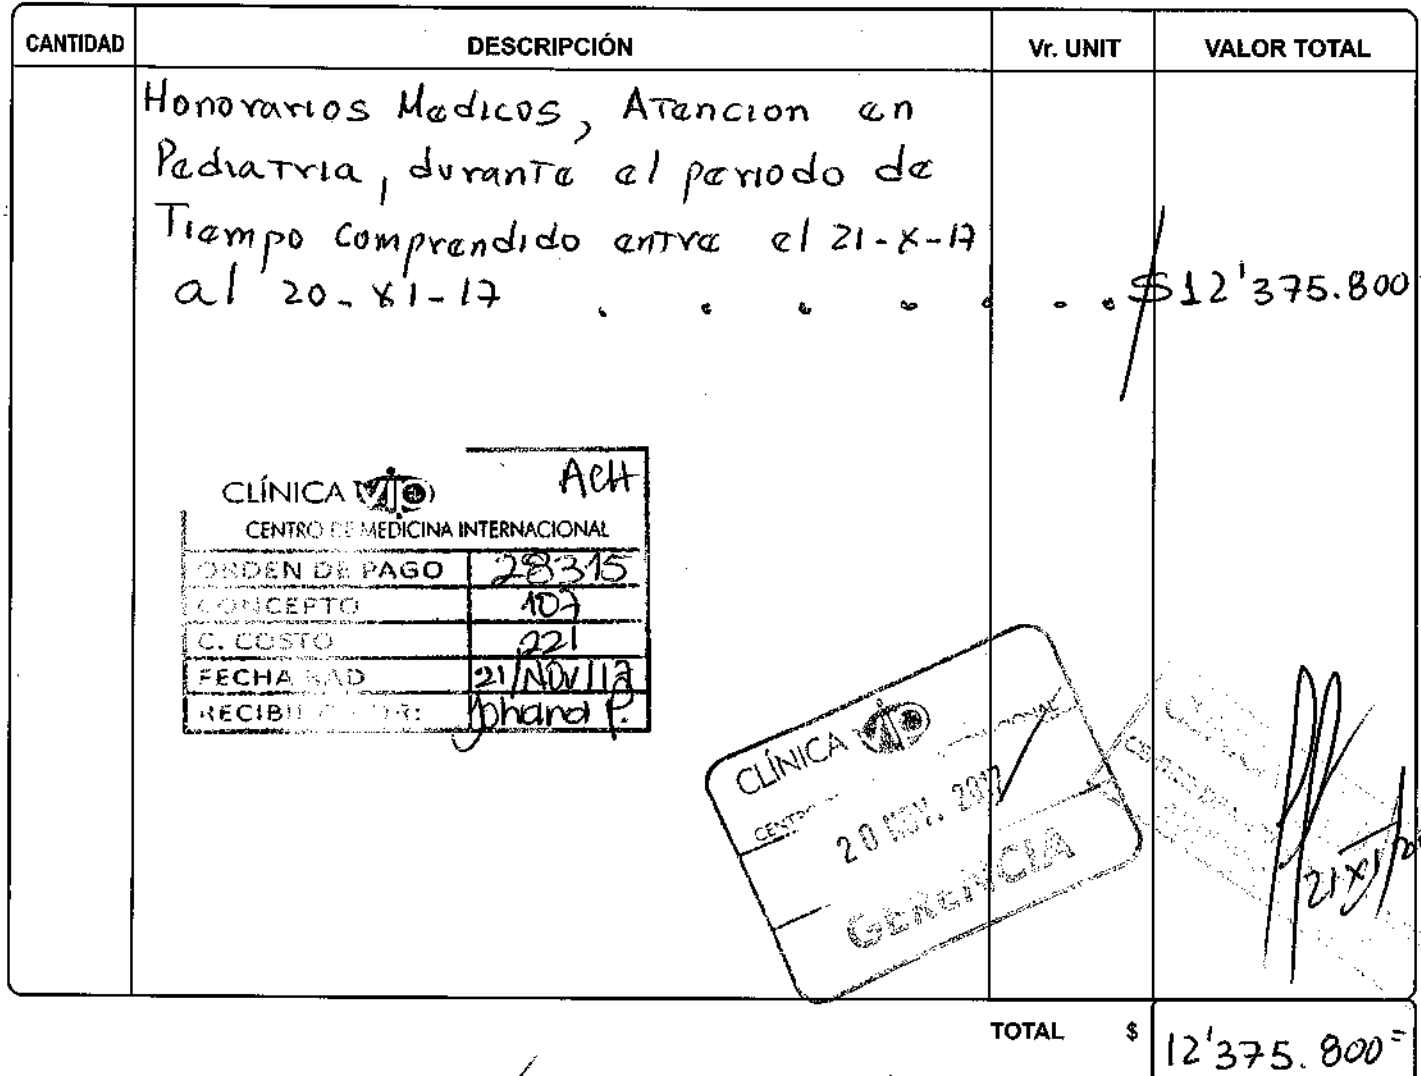 CANTIDAD DESCRIPCIÓN Vr. UNIT VALOR TOTAL
Honorarios Medicos, Atencion en
Pediatria, durante el periodo de
Tiempo comprendido entre el 21-X-17
al 20-XI-17 . . . . . . . $12'375.800
ACH
CLÍNICA VIP
CENTRO DE MEDICINA INTERNACIONAL
ORDEN DE PAGO 28315
CONCEPTO 107
C. COSTO 221
FECHA RAD 21/NOV/17
RECIBIDO POR: Johana P.
CLÍNICA VIP
20 NOV. 2017
GERENCIA
21/XI/
TOTAL $ 12'375.800=